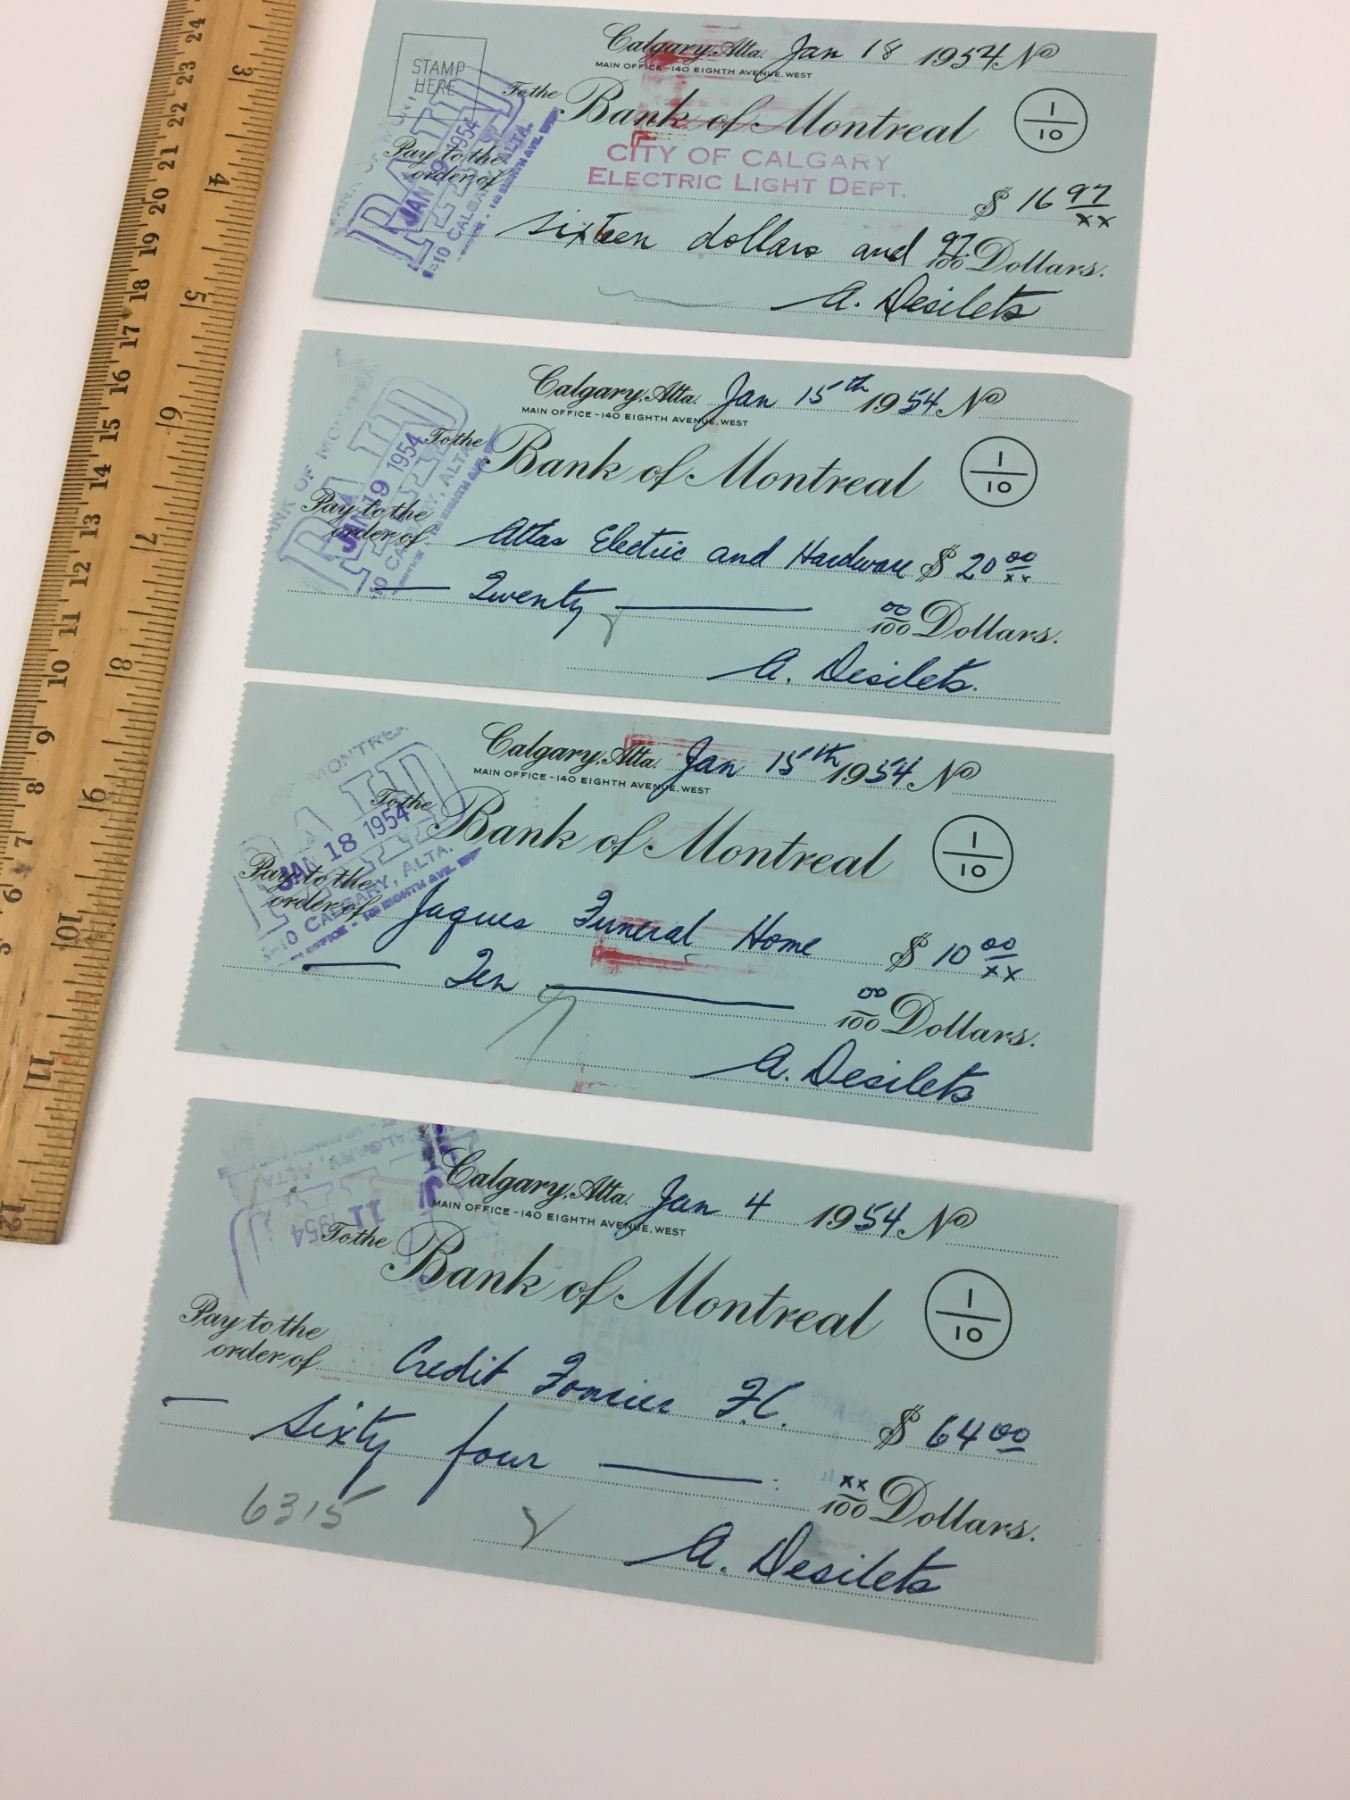 STAMP
HERE
Calgary, Alta. Jan 18 1954 No
MAIN OFFICE - 140 EIGHTH AVENUE, WEST
To the Bank of Montreal
1
10
PAID
JAN 19 1954
Pay to the
order of
CITY OF CALGARY
ELECTRIC LIGHT DEPT.
$ 16 97/xx
sixteen dollars and 97/100 Dollars.
A. Desilets
Calgary, Alta. Jan 15th 1954 No
MAIN OFFICE - 140 EIGHTH AVENUE, WEST
To the Bank of Montreal
1
10
PAID
JAN 19 1954
Pay to the
order of Atlas Electric and Hardware $ 20 00/xx
Twenty 00/100 Dollars.
A. Desilets.
Calgary, Alta. Jan 15th 1954 No
MAIN OFFICE - 140 EIGHTH AVENUE, WEST
To the Bank of Montreal
1
10
PAID
JAN 18 1954
CALGARY, ALTA.
Pay to the
order of Jaques Funeral Home $ 10 00/xx
Ten 00/100 Dollars.
A. Desilets
Calgary, Alta. Jan 4 1954 No
MAIN OFFICE - 140 EIGHTH AVENUE, WEST
CALGARY, ALTA.
11 1954
To the Bank of Montreal
1
10
Pay to the
order of Credit Foncier F.C. $ 64 00
Sixty four xx/100 Dollars.
6315
A. Desilets
3 4 5 6 7 8 9 10 11 12
24 23 22 21 20 19 18 17 16 15 14 13 12 11 10 9 8 7 6